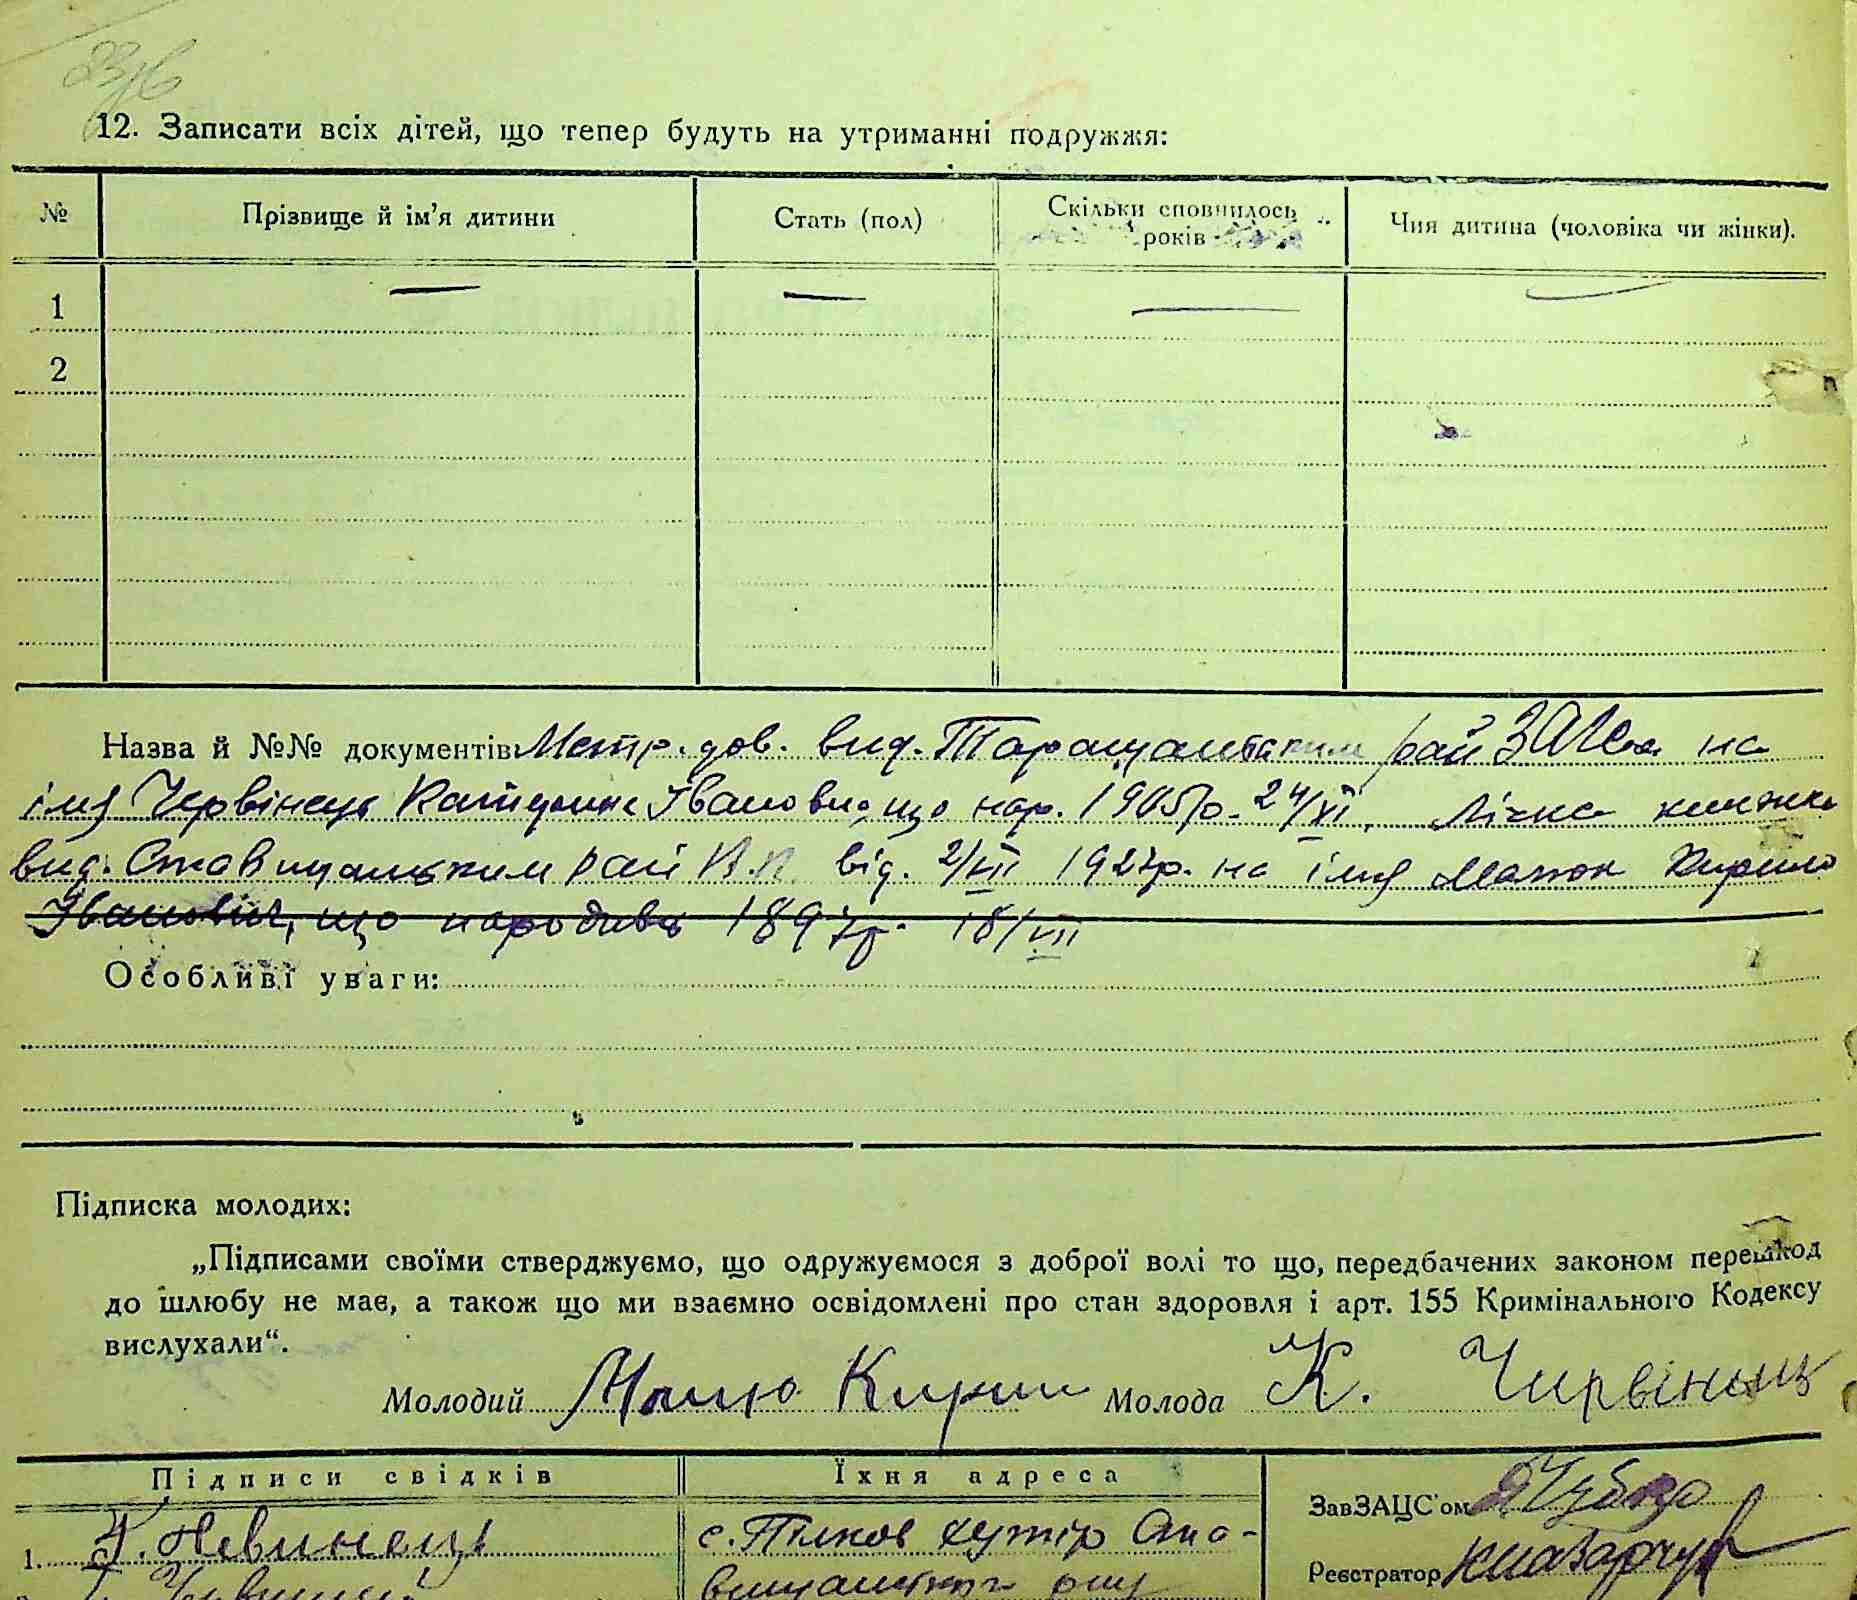 12. Записати всіх дітей, що тепер будуть на утриманні подружжя:
№ Прізвище й ім’я дитини Стать (пол) Скільки сповнилось років Чия дитина (чоловіка чи жінки).
1 — — — —
2
Назва й №№ документів: Метр. дов. вид. Таращанським рай ЗАГСом на
ім'я Червінець Катерина Івановна, що нар. 1905 р. 24/VI. Лічна книжка
вид. Ставищанським рай В.К. від. 2/VII 1927р. на ім'я Кирило
Іванович, що народивсь 1897р. 18/VII
Особливі уваги:
Підписка молодих:
„Підписами своїми стверджуємо, що одружуємося з доброї волі то що, передбачених законом перешкод
до шлюбу не має, а також що ми взаємно освідомлені про стан здоровля і арт. 155 Кримінального Кодексу
вислухали“.
Молодий Кирило Молода К. Чирвіниц
Підписи свідків Їхня адреса
ЗавЗАЦС’ом
1. Невинець с. хутір Ста-
Реєстратор
вищанського